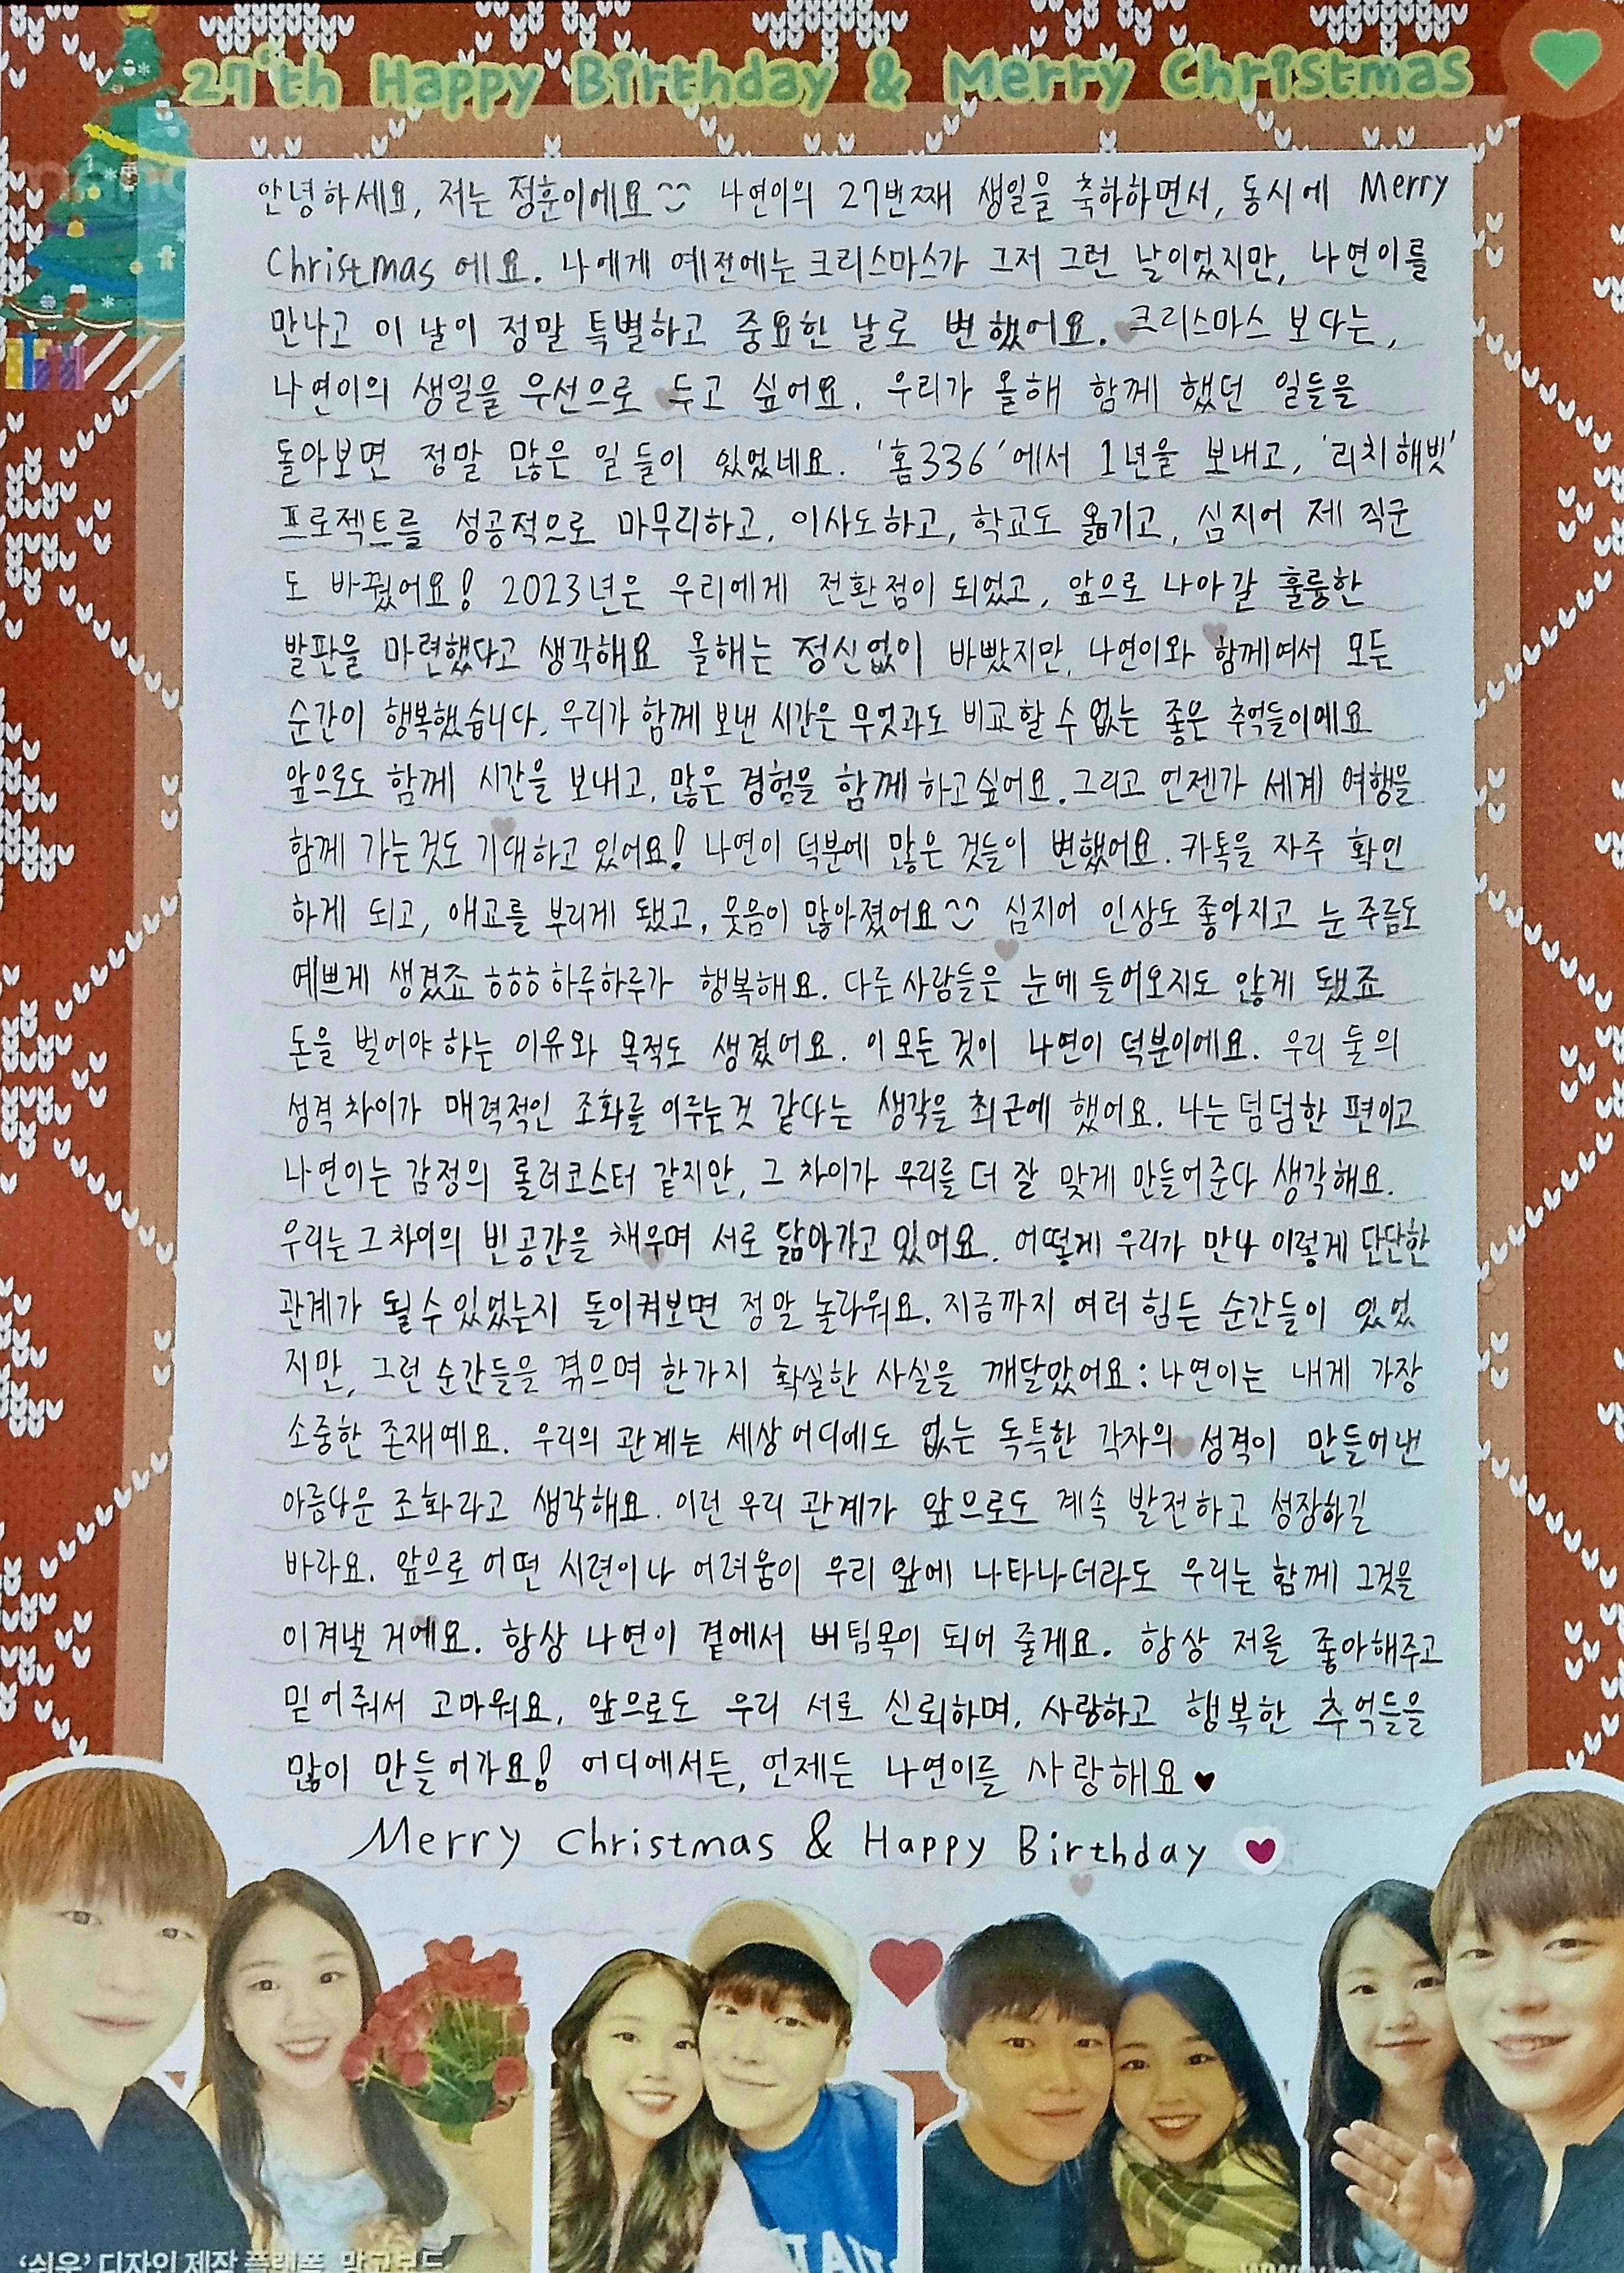 27'th Happy Birthday & Merry Christmas
안녕하세요, 저는 정훈이에요^^ 나연이의 27번째 생일을 축하하면서, 동시에 Merry
Christmas 에요. 나에게 예전에는 크리스마스가 그저 그런 날이었지만, 나연이를
만나고 이 날이 정말 특별하고 중요한 날로 변했어요. 크리스마스 보다는,
나연이의 생일을 우선으로 두고 싶어요. 우리가 올해 함께 했던 일들을
돌아보면 정말 많은 일들이 있었네요. '홈336'에서 1년을 보내고, '리치해빗'
프로젝트를 성공적으로 마무리하고, 이사도하고, 학교도 옮기고, 심지어 제 직군
도 바꿨어요! 2023년은 우리에게 전환점이 되었고, 앞으로 나아갈 훌륭한
발판을 마련했다고 생각해요 올해는 정신없이 바빴지만, 나연이와 함께여서 모든
순간이 행복했습니다. 우리가 함께 보낸 시간은 무엇과도 비교할 수 없는 좋은 추억들이에요
앞으로도 함께 시간을 보내고, 많은 경험을 함께 하고싶어요. 그리고 언젠가 세계 여행을
함께 가는것도 기대하고 있어요! 나연이 덕분에 많은 것들이 변했어요. 카톡을 자주 확인
하게 되고, 애교를 부리게 됐고, 웃음이 많아졌어요^^ 심지어 인상도 좋아지고 눈 주름도
예쁘게 생겼죠 ㅎㅎㅎ 하루하루가 행복해요. 다른 사람들은 눈에 들어오지도 않게 됐죠
돈을 벌어야 하는 이유와 목적도 생겼어요. 이 모든 것이 나연이 덕분이에요. 우리 둘의
성격 차이가 매력적인 조화를 이루는것 같다는 생각을 최근에 했어요. 나는 덤덤한 편이고
나연이는 감정의 롤러코스터 같지만, 그 차이가 우리를 더 잘 맞게 만들어준다 생각해요.
우리는 그 차이의 빈 공간을 채우며 서로 닮아가고 있어요. 어떻게 우리가 만나 이렇게 단단한
관계가 될 수 있었는지 돌이켜보면 정말 놀라워요. 지금까지 여러 힘든 순간들이 있었
지만, 그런 순간들을 겪으며 한가지 확실한 사실을 깨달았어요: 나연이는 내게 가장
소중한 존재예요. 우리의 관계는 세상 어디에도 없는 독특한 각자의 성격이 만들어낸
아름다운 조화라고 생각해요. 이런 우리 관계가 앞으로도 계속 발전하고 성장하길
바라요. 앞으로 어떤 시련이나 어려움이 우리 앞에 나타나더라도 우리는 함께 그것을
이겨낼 거예요. 항상 나연이 곁에서 버팀목이 되어 줄게요. 항상 저를 좋아해주고
믿어줘서 고마워요. 앞으로도 우리 서로 신뢰하며, 사랑하고 행복한 추억들을
많이 만들어가요! 어디에서든, 언제든 나연이를 사랑해요♥
Merry Christmas & Happy Birthday ♥
디자인 제작 플랫폼